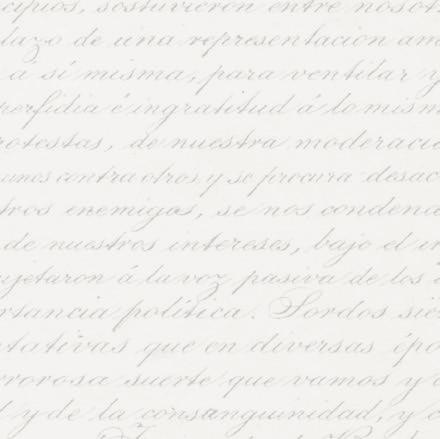 cipios, sostuvieron entre nosot
lazo de una representacion am
á sí misma, para ventilar y
perfidia é ingratitud á lo mism
rotestas, de nuestra moderacio
unos contra otros, y se procura desac
tros enemigos, se nos condena
de nuestros intereses, bajo el in
ujetaron á la voz pasiva de los
rtancia política. Sordos sie
ntativas que en diversas épo
rrorosa suerte que vamos y
y de la consanguinidad, y